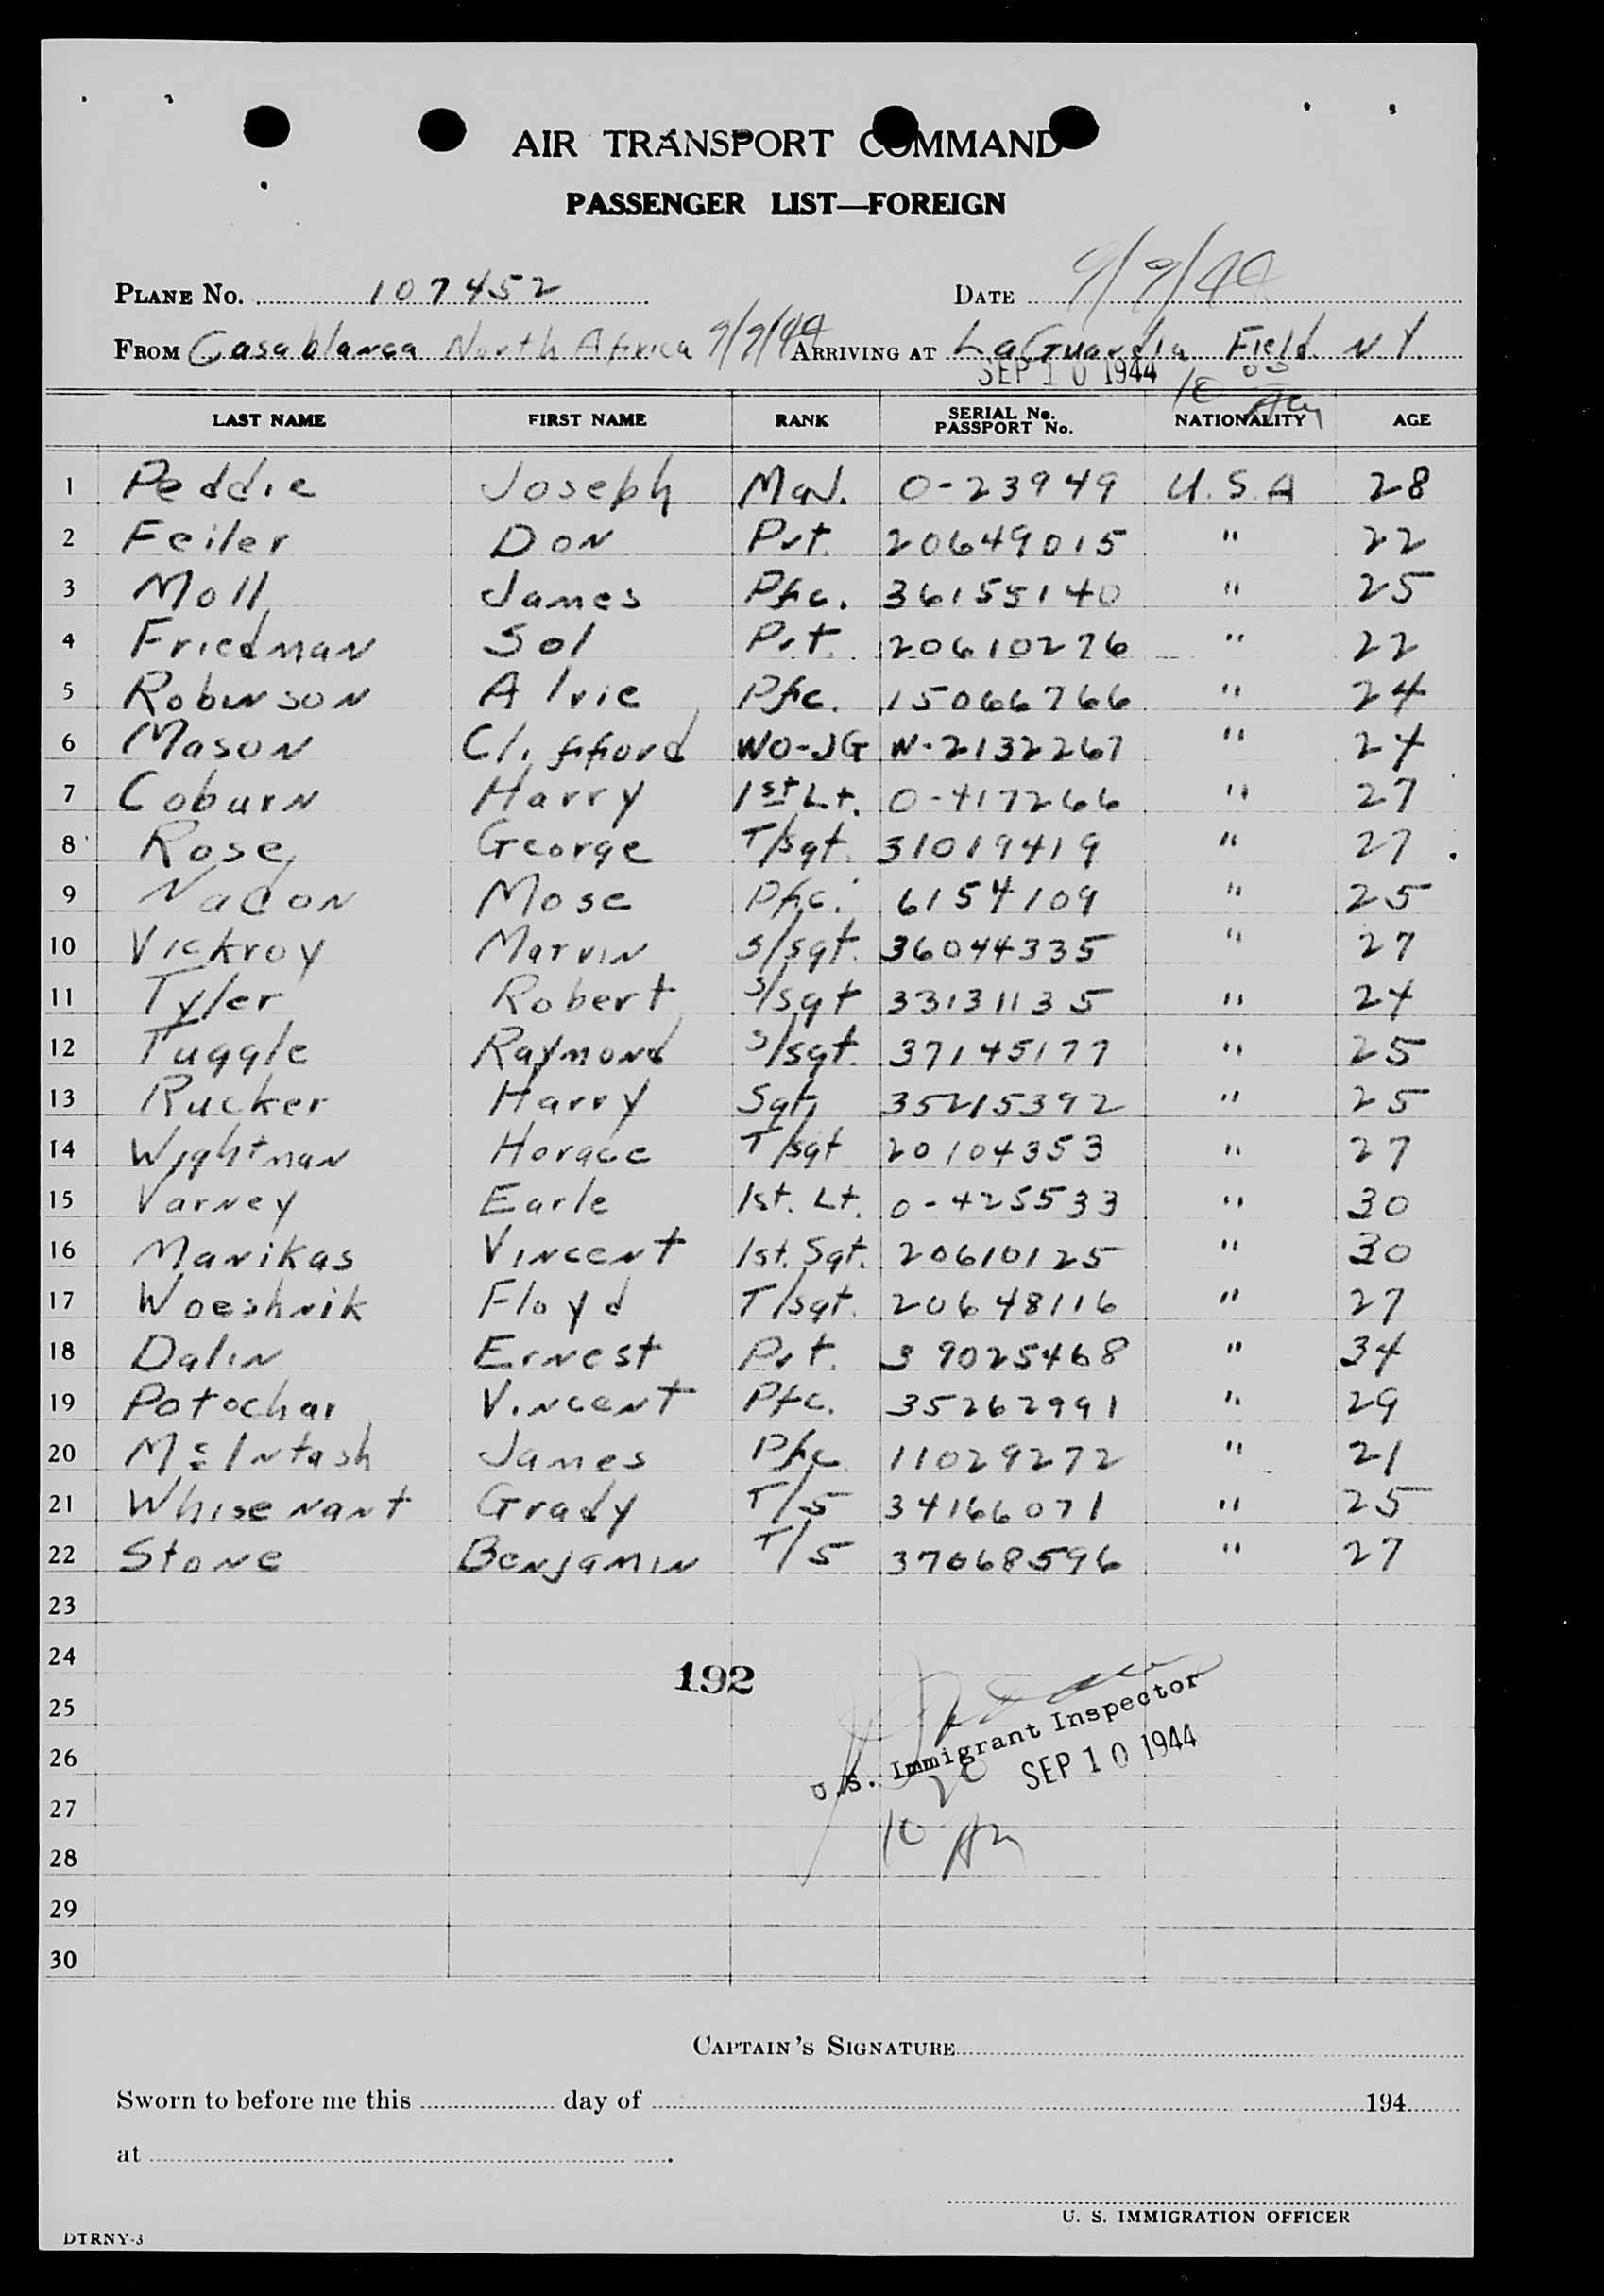 AIR TRANSPORT COMMAND
PASSENGER LIST—FOREIGN
PLANE No. 107452 DATE 9/9/44
FROM Casablanca North Africa 9/9/44 ARRIVING AT LaGuardia Field N Y.
SEP 10 1944 10 05 AM
LAST NAME FIRST NAME RANK SERIAL No. PASSPORT No. NATIONALITY AGE
1 Peddie Joseph MaJ. O-23949 U.S.A 28
2 Feiler Don Pvt. 20649015 " 22
3 Moll James Pfc. 36155140 " 25
4 Friedman Sol Pvt. 20610276 " 22
5 Robinson Alvie Pfc. 15066766 " 24
6 Mason Clifford WO-JG W-2132267 " 24
7 Coburn Harry 1st Lt. O-417266 " 27
8 Rose George T/sgt. 31019419 " 27
9 Nadon Mose Pfc. 6154109 " 25
10 Vickroy Marvin S/sgt. 36044335 " 27
11 Tyler Robert S/sgt 33131135 " 24
12 Tuggle Raymond S/sgt. 37145177 " 25
13 Rucker Harry Sgt. 35215392 " 25
14 Wightman Horace T/sgt 20104353 " 27
15 Varney Earle 1st. Lt. O-425533 " 30
16 Manikas Vincent 1st. Sgt. 20610125 " 30
17 Woeshnik Floyd T/sgt. 20648116 " 27
18 Dalin Ernest Pvt. 39025468 " 34
19 Potochar Vincent Pfc. 35262991 " 29
20 McIntash James Pfc 11029272 " 21
21 Whisenant Grady T/5 34166071 " 25
22 Stone Benjamin T/5 37068596 " 27
23
24
192
25
U.S. Immigrant Inspector
26
SEP 10 1944
27
10 20 AM
28
29
30
CAPTAIN'S SIGNATURE
Sworn to before me this day of 194
at
U. S. IMMIGRATION OFFICER
DTRNY-3